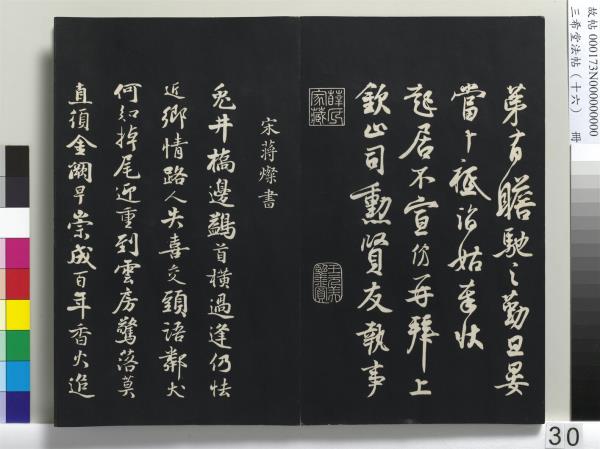 故帖 000173N000000000
三希堂法帖（十六） 冊
第有瞻馳之勤旦晏
當卜祗詣姑奉狀
起居不宣仿再拜上
欽止司勳賢友執事
薛氏家藏
宋蔣燦書
兎井橋邊鷁首橫過逢仍怯
近鄉情路人失喜交頭語鄰犬
何知掉尾迎重到雲房驚落莫
直須金闕早崇成百年香火追
30